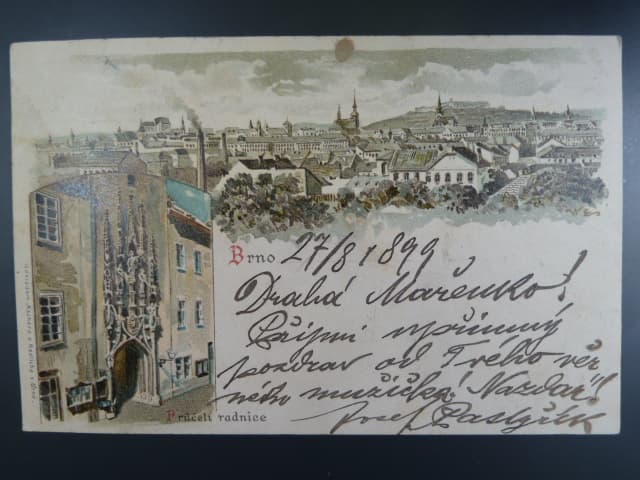 Brno 27/8 1899
Drahá Mařenko!
Přijmi upřímný
pozdrav od Tvého věr
ného mužíčka. Nazdar!
Josef
Průčelí radnice